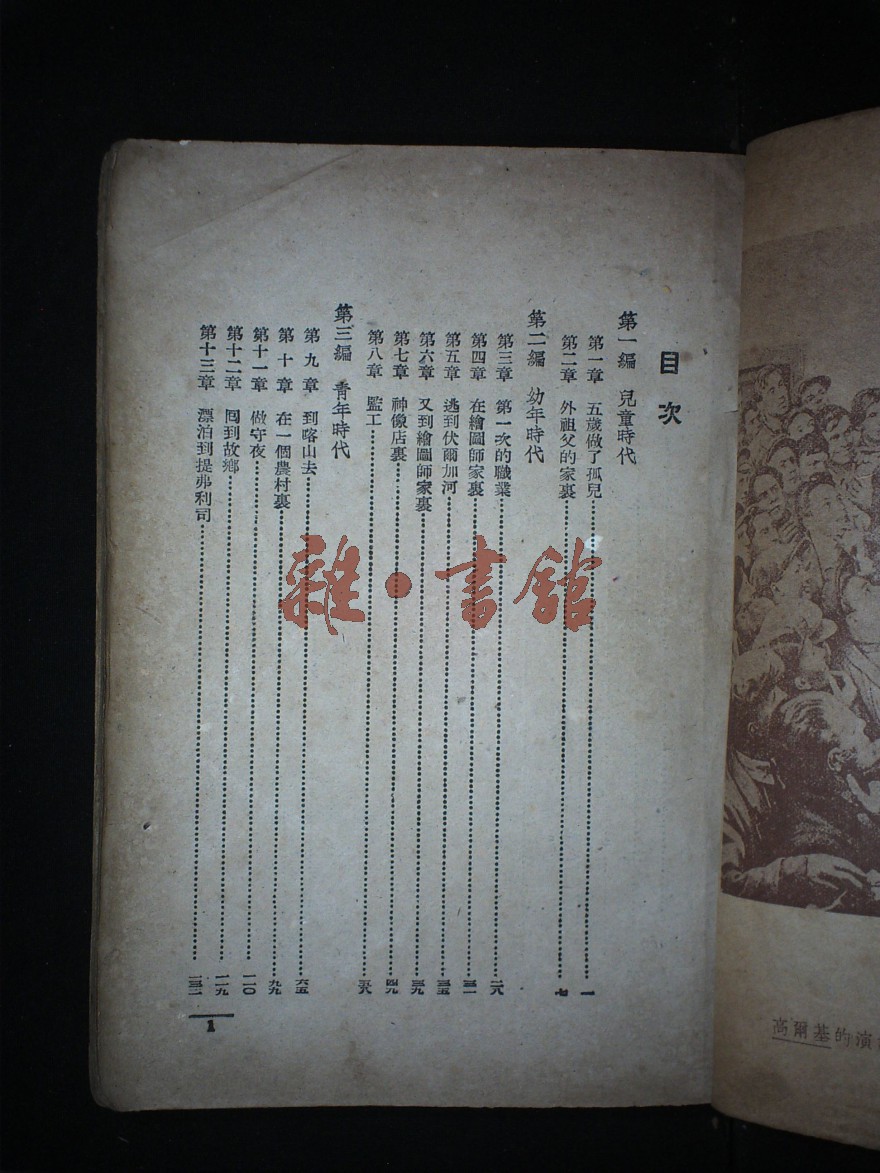 目次
第一編 兒童時代
第一章 五歲做了孤兒 一
第二章 外祖父的家裏 七
第二編 幼年時代
第三章 第一次的職業 二八
第四章 在繪圖師家裏 三一
第五章 逃到伏爾加河 三五
第六章 又到繪圖師家裏 三九
第七章 神像店裏 四九
第八章 監工 五八
第三編 青年時代
第九章 到喀山去 六五
第十章 在一個農村裏 九九
第十一章 做守夜 一一〇
第十二章 囘到故鄉 一一九
第十三章 漂泊到提弗利司
1
雜·書館
高爾基的演